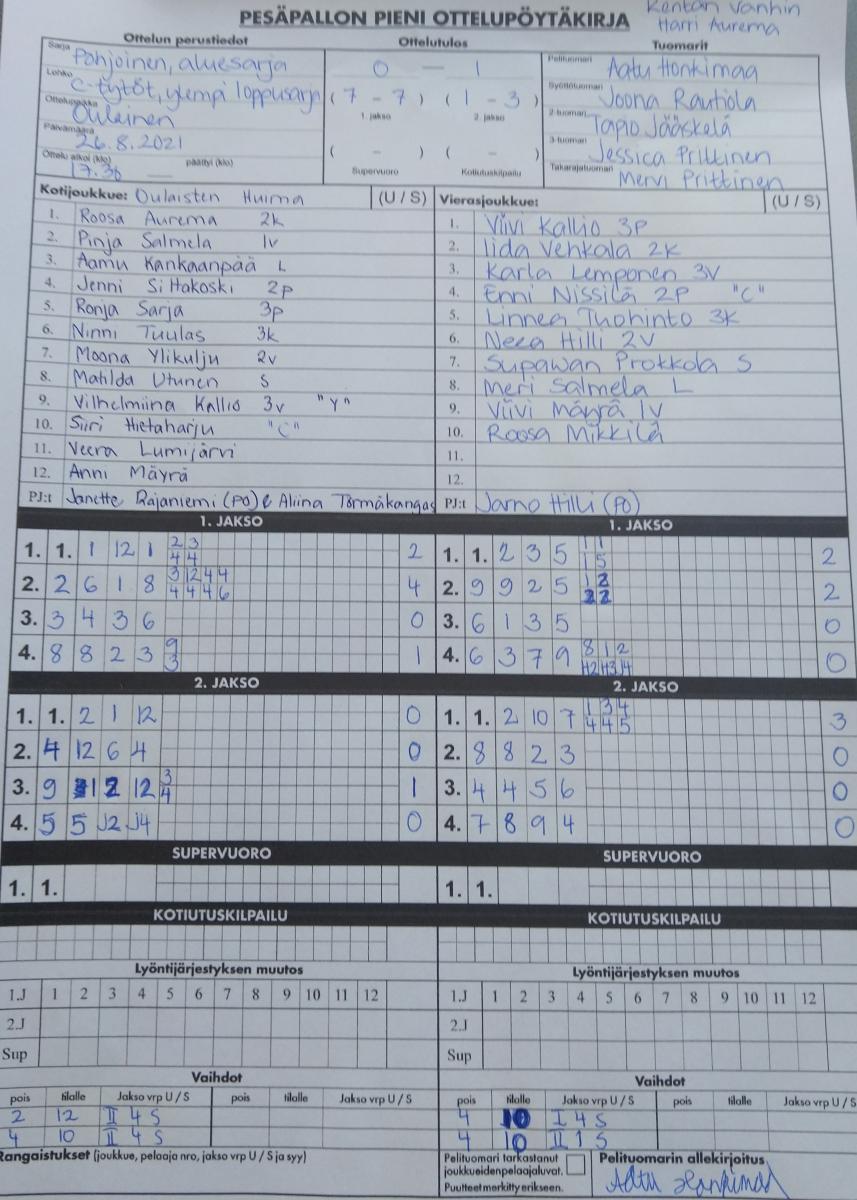 PESÄPALLON PIENI OTTELUPÖYTÄKIRJA
Kentän vanhin
Harri Aurema
Ottelun perustiedot
Ottelutulos
Tuomarit
Sarja Pohjoinen, aluesarja
0 — 1
Pelituomari Aatu Honkimaa
Lohko C-tytöt, ylempi loppusarj
( 7 - 7 ) ( 1 - 3 )
1. jakso 2. jakso
Syöttötuomari Joona Rautiola
Ottelupaikka Oulainen
2-tuomari Tapio Jääskelä
Päivämäärä 26.8.2021
( - ) ( - )
3-tuomari Jessica Prittinen
Ottelu alkoi (klo) 17.36 päättyi (klo)
Supervuoro Kotiutuskilpailu
Takarajatuomari Mervi Prittinen
Kotijoukkue: Oulaisten Huima (U / S)
1. Roosa Aurema 2k
2. Pinja Salmela 1v
3. Aamu Kankaanpää L
4. Jenni Siitakoski 2p
5. Ronja Sarja 3p
6. Ninni Tuulas 3k
7. Moona Ylikulju 2v
8. Matilda Utunen S
9. Vilhelmiina Kallio 3v "Y"
10. Siiri Hietaharju "C"
11. Veera Lumijärvi
12. Anni Mäyrä
PJ:t Janette Rajaniemi (PO) & Aliina Törmäkangas
Vierasjoukkue: (U / S)
1. Viivi Kallio 3p
2. Iida Vehkala 2k
3. Karla Lemponen 3v
4. Enni Nissilä 2p "C"
5. Linnea Tuohinto 3k
6. Neea Hilli 2v
7. Supawan Prokkola S
8. Meri Salmela L
9. Viivi Mäyrä 1v
10. Roosa Mikkilä
11.
12.
PJ:t Jarno Hilli (PO)
1. JAKSO
1. 1. 1 12 1 2 3 2
4 4
2. 2 6 1 8 3 12 4 4 4
4 4 4 6
3. 3 4 3 6 0
4. 8 8 2 3 9 1
3
1. JAKSO
1. 1. 2 3 5 1 1 2
1 5
2. 9 9 2 5 1 2 2
2 2
3. 6 1 3 5 0
4. 6 3 7 9 8 1 2 0
2. JAKSO
1. 1. 2 1 12 0
2. 4 12 6 4 0
3. 9 12 12 3 1
4
4. 5 5 J2 J4 0
2. JAKSO
1. 1. 2 10 7 1 3 4 3
4 4 5
2. 8 8 2 3 0
3. 4 4 5 6 0
4. 7 8 9 4 0
SUPERVUORO
1. 1.
SUPERVUORO
1. 1.
KOTIUTUSKILPAILU
KOTIUTUSKILPAILU
Lyöntijärjestyksen muutos
1.J 1 2 3 4 5 6 7 8 9 10 11 12
2.J
Sup
Lyöntijärjestyksen muutos
1.J 1 2 3 4 5 6 7 8 9 10 11 12
2.J
Sup
Vaihdot
pois tilalle Jakso vrp U / S pois tilalle Jakso vrp U / S
2 12 II 4 S
4 10 II 4 S
Vaihdot
pois tilalle Jakso vrp U / S pois tilalle Jakso vrp U / S
4 10 I 4 S
4 10 II 1 S
Rangaistukset (joukkue, pelaaja nro, jakso vrp U / S ja syy)
Pelituomari tarkastanut
joukkueidenpelaajaluvat.
Puutteet merkitty erikseen.
Pelituomarin allekirjoitus
Aatu Honkimaa